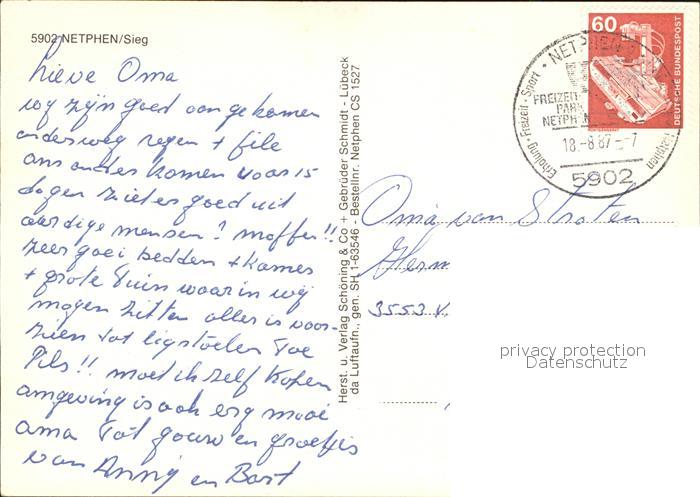 5902 NETPHEN/Sieg
Lieve Oma
wij zijn goed aangekomen
onderweg regen + file
ons onderkomen voor 15
dagen ziet er goed uit
aardige mensen? moffen!!
zeer goei bedden + kamer
+ grote Tuin waar in wij
mogen zitten alles is voor-
zien tot ligstoelen Toe
Pils!! moet ik zelf kopen
omgeving is ook erg mooi
oma Tot gauw en groetjes
van Anny en Bart
Herst. u. Verlag Schöning & Co + Gebrüder Schmidt - Lübeck
da Luftaufn., gen. SH 1-63546 - Bestellnr. Netphen CS 1527
60
DEUTSCHE BUNDESPOST
NETPHEN
FREIZEIT
PARK
NETPHEN
18.-8.87 - -7
Erholung • Freizeit • Sport
Netphen
5902
Oma van Straten
Herm
3553 V
privacy protection
Datenschutz